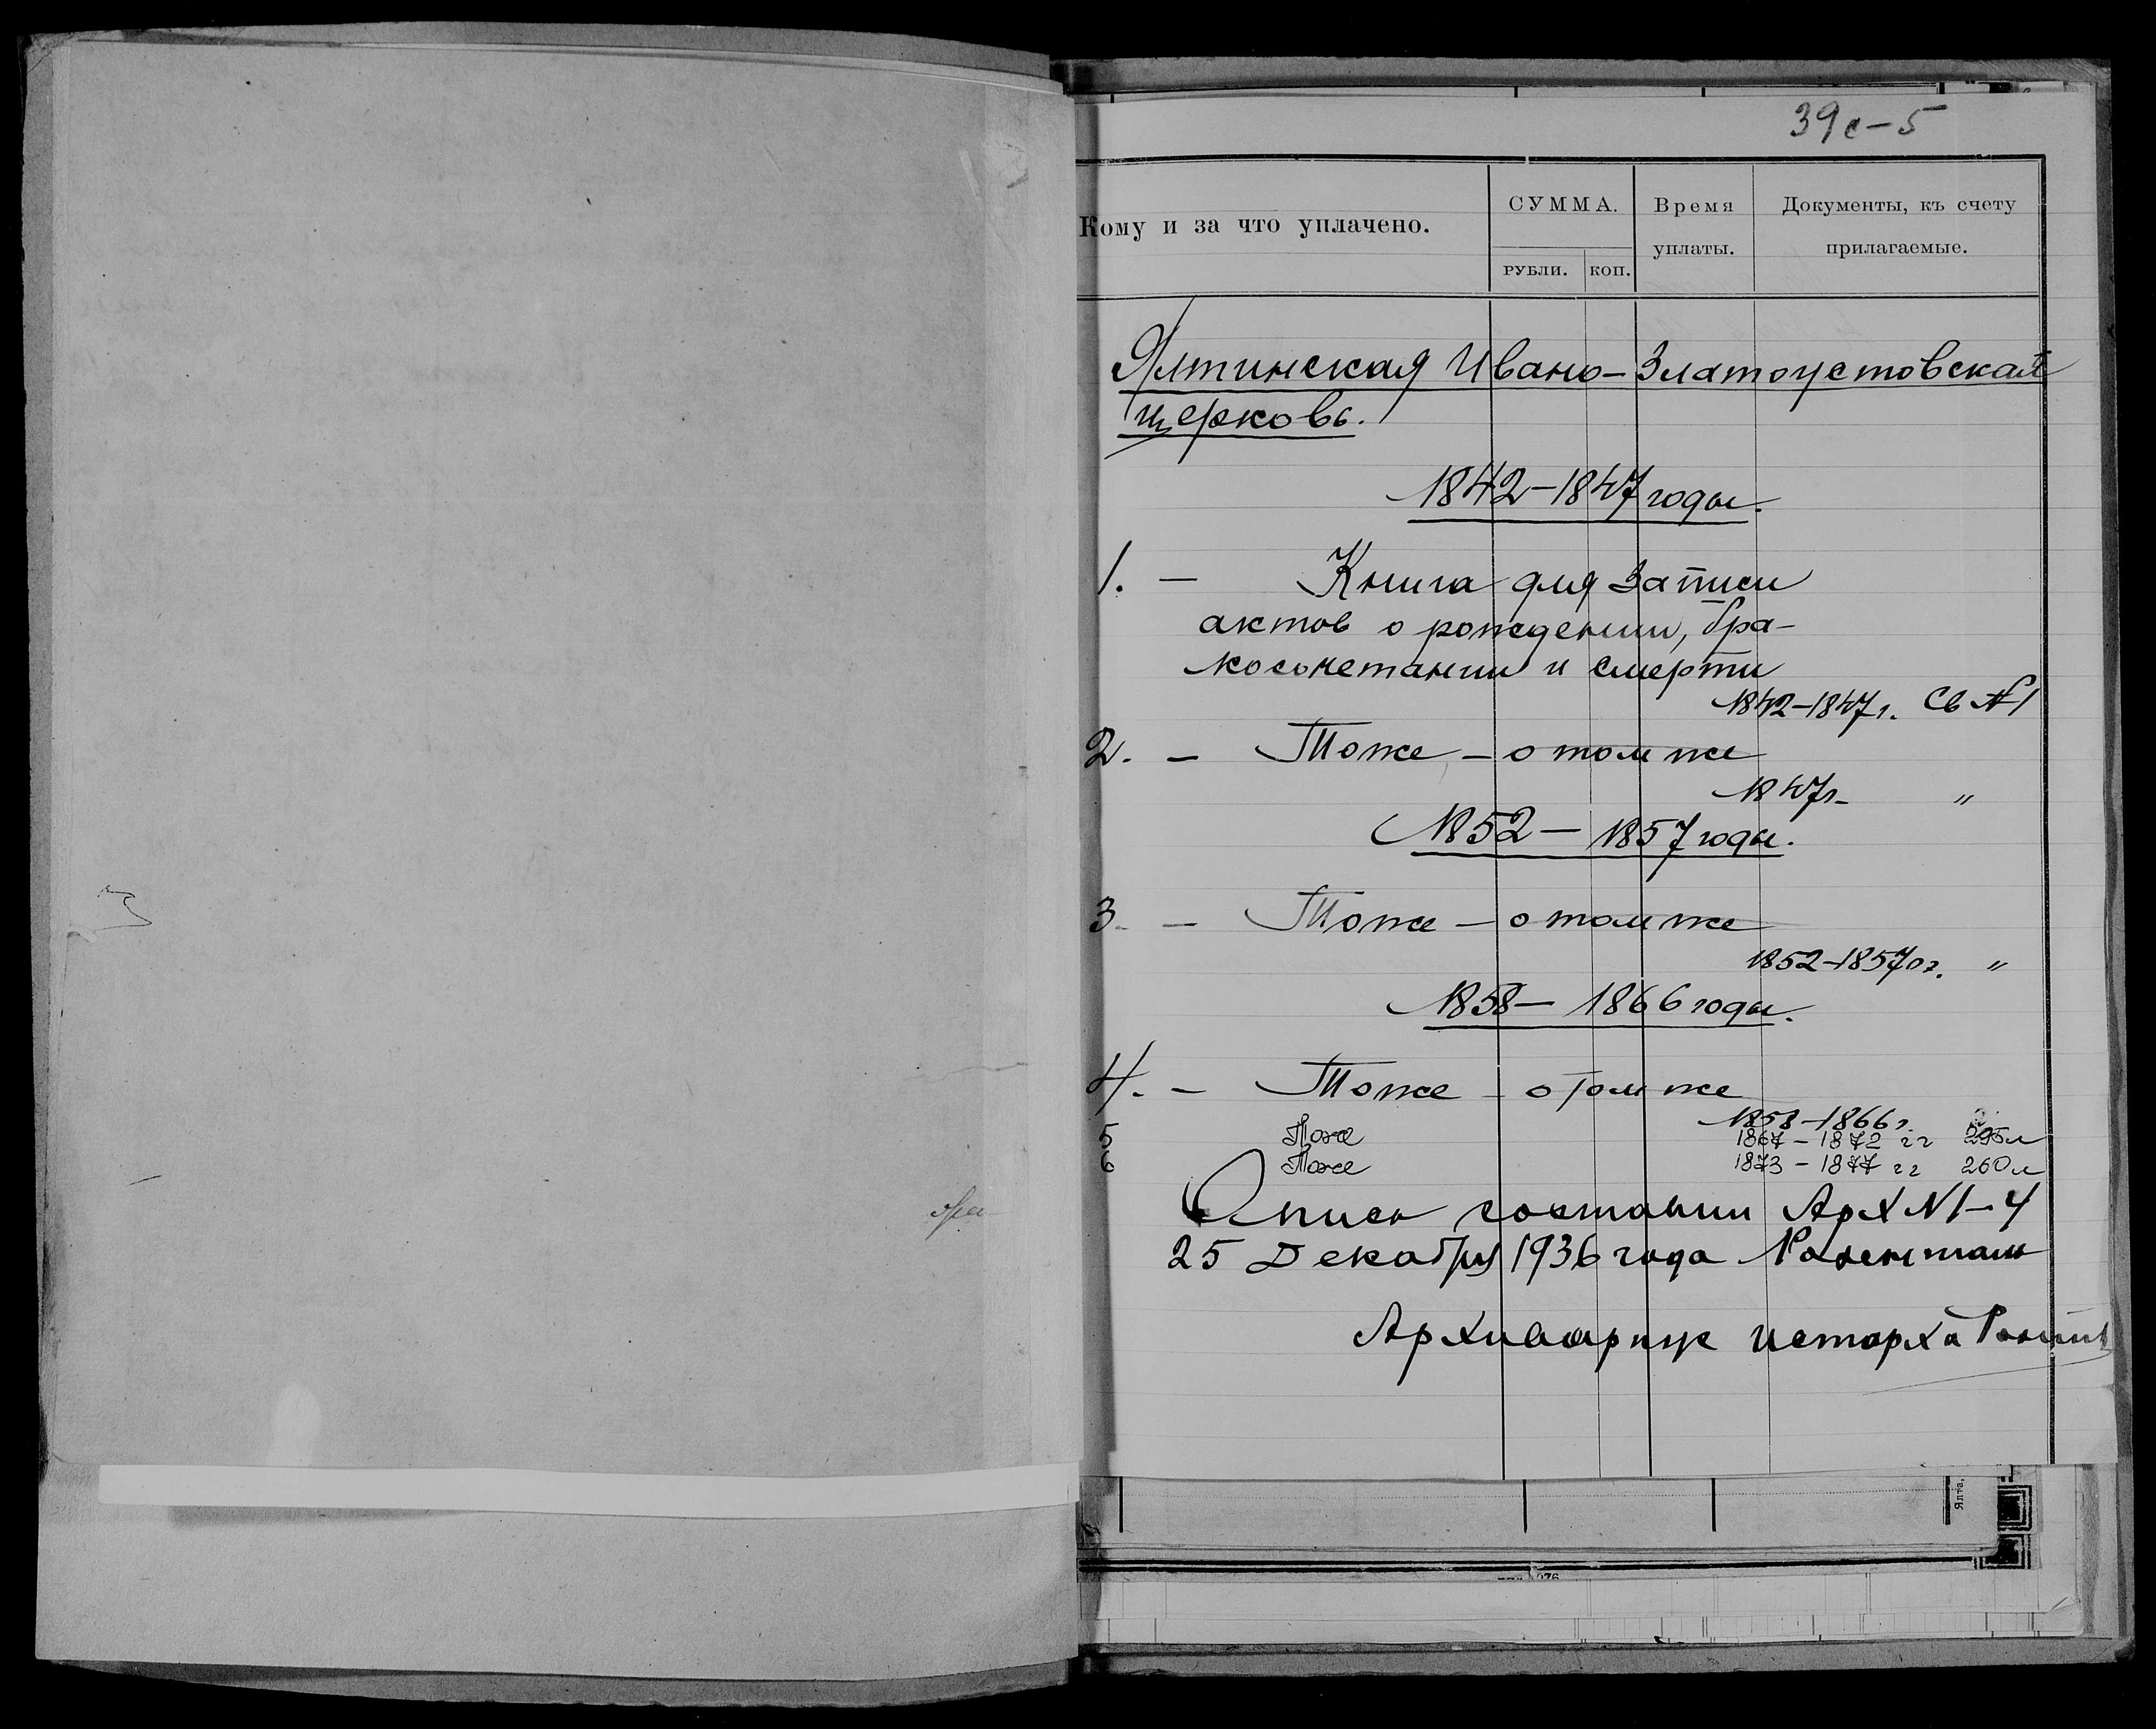 39с-5
Кому и за что уплачено.
СУММА.
РУБЛИ.
КОП.
Время
уплаты.
Документы, къ счету
прилагаемые.
Ялтинская Ивано-Златоустовская
церковь.
1842-1847 годы.
1. - Книга для записи
актов о рождении, бра-
косочетании и смерти
1842-1847г. Св №1
2. - Тоже - о том же
1847г. "
1852 - 1857 годы.
3. - Тоже - о том же
1852-1857 "
1858 - 1866 годы.
4. - Тоже - о том же
1858-1866г.
5 Тоже 1867 - 1872 гг
6 Тоже 1873 - 1877 гг 260л
Опись Арх №1-4
25 Декабря 1936 года
Архивариус
Ялта,